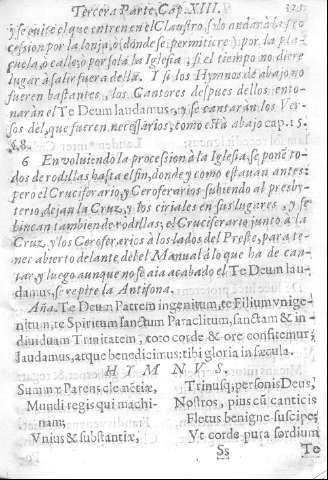 Tercera Parte, Cap. XIII.
y se euite el que entren en el Claustro, solo andarà la pro
cession por la lonja, o (donde se permitiere) por la pla-
çuela, o calle, o por sola la Iglesia, si el tiempo no diere
lugar à salir fuera della. Y si los Hymnos de abajo no
fueren bastantes, los Cantores despues dellos ento-
naràn el Te Deum laudamus, y se cantaràn los Ver-
sos del, que fueren necessarios, como està abajo cap. 15.
§. 8.
6 En voluiendo la procession à la Iglesia, se pone to-
dos de rodillas hasta el fin, donde y como estauan antes:
pero el Cruciferario, y Ceroferarios subiendo al presby-
terio, dejan la Cruz, y los ciriales en sus lugares, y se
hincan tambien de rodillas; el Cruciferario junto à la
Cruz, y los Ceroferarios à los lados del Preste, para te-
ner abierto delante del el Manual à lo que ha de can-
tar, y luego aunque no se aia acabado el Te Deum lau-
damus, se repite la Antifona.
Aña. Te Deum Patrem ingenitum, te Filium vnige-
nitum, te Spiritum sanctum Paraclitum, sanctam & in-
diuiduam Trinitatem, toto corde & ore confitemur,
laudamus, atque benedicimus: tibi gloria in sæcula.
HYMNVS.
Summæ Parens clemētiæ,
Mundi regis qui machi-
nam;
Vnius & substantiæ,
Trinusq; personis Deus,
Nostros, pius cū canticis
Fletus benigne suscipe;
Vt corde pura sordium
Ss
Te